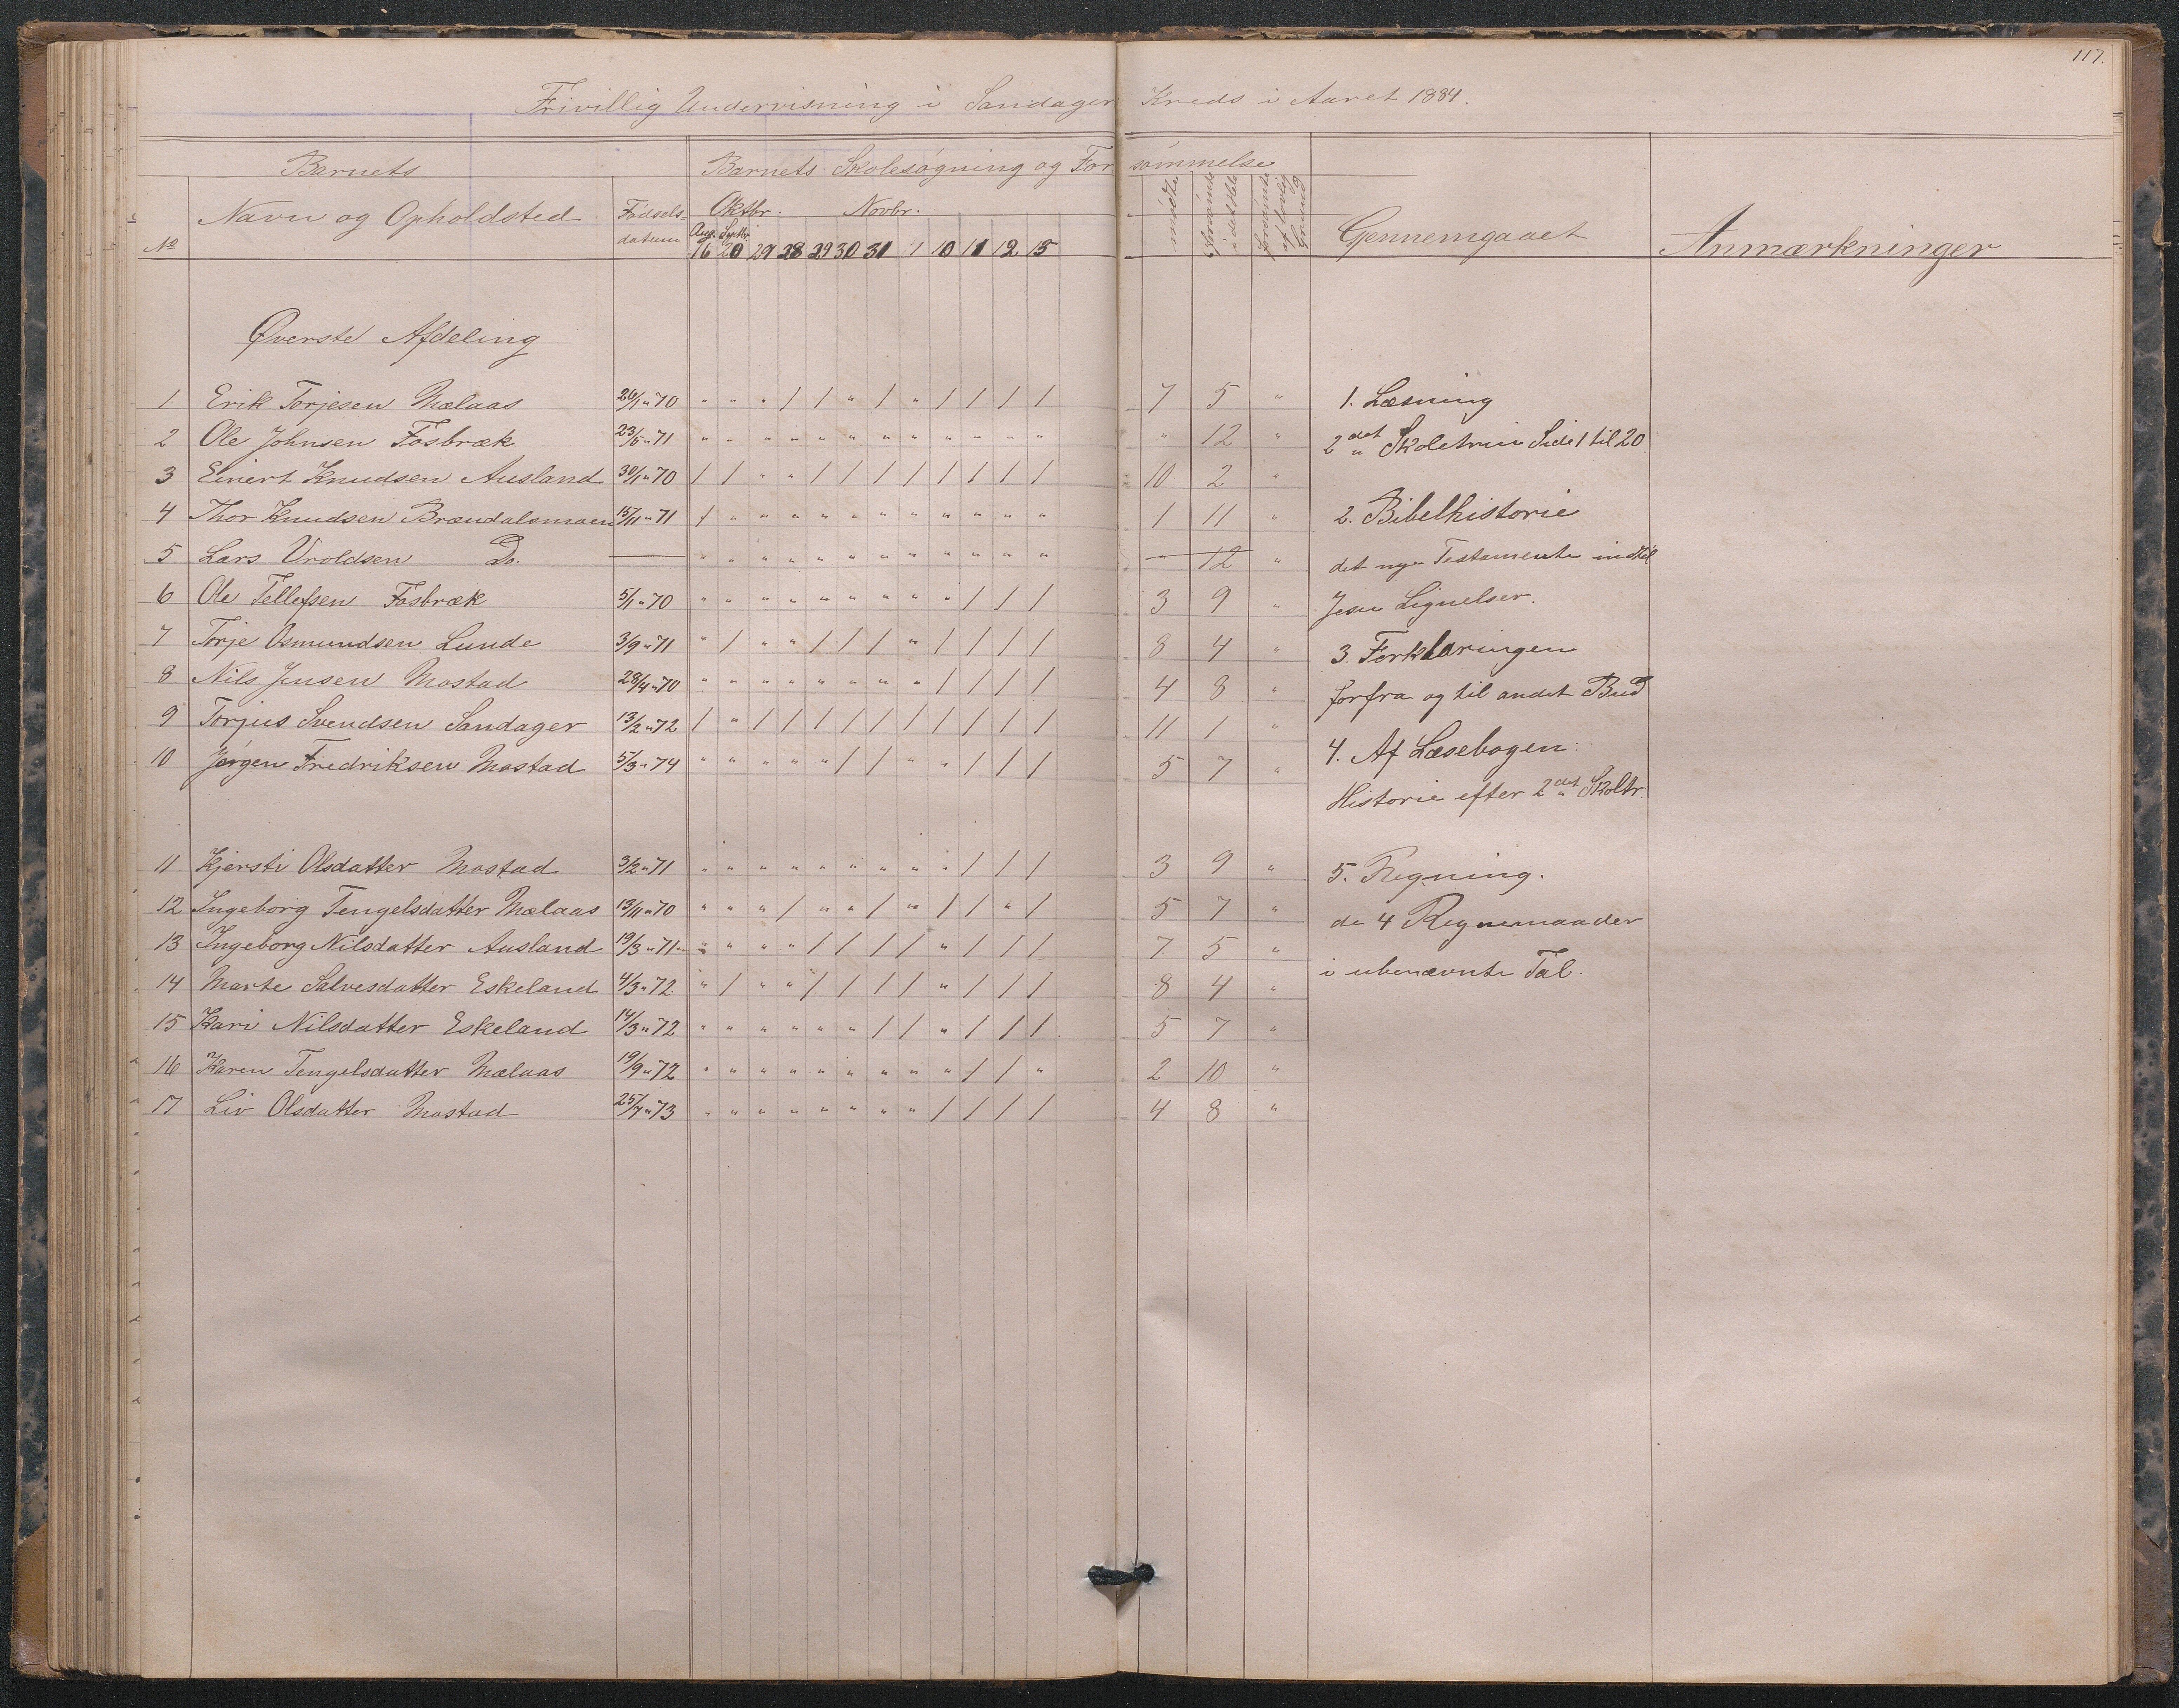 117.
Frivillig Undervisning i Sandager Kreds i Aaret 1884.
Barnets Barnets Skolesøgning og Forsømmelse
No Navn og Opholdsted Fødselsdatum Oktbr. Novbr. mødte Forsømte i det Hele Forsømte af lovlig Grund Gennemgaaet Anmærkninger
Aug. Septbr.
16 20 29 28 29 30 31 1 10 11 12 15
Øverste Afdeling
1 Erik Torjesen Mælaas 26/1 " 70 " " " / / " / " / / / / 7 5 "
2 Ole Johnsen Fosbræk 23/5 " 71 " " " " " " " " " " " " " 12 "
3 Einert Knudsen Ausland 30/1 " 70 / / " " / / / / / / / / 10 2 "
4 Thor Knudsen Brændalsmoen 15/11 " 71 / " " " " " " " " " " " 1 11 "
5 Lars Uroldsen Do. — " " " " " " " " " " " " — 12 "
6 Ole Tellefsen Fosbræk 5/1 " 70 " " " " " " " " " / / / 3 9 "
7 Torje Osmundsen Lunde 3/9 " 71 " / " " / / / " / / / / 8 4 "
8 Nils Jensen Mostad 28/4 " 70 " " " " " " " " / / / / 4 8 "
9 Torjus Svendsen Sandager 13/2 " 72 / " / / / / / / / / / / 11 1 "
10 Jørgen Fredriksen Mostad 5/3 " 74 " " " " " / / " " / / / 5 7 "
11 Kjersti Olsdatter Mostad 3/2 " 71 " " " " " " " " " / / / 3 9 "
12 Ingeborg Tengelsdatter Mælaas 13/11 " 70 " " " / " " / " / / " / 5 7 "
13 Ingeborg Nilsdatter Ausland 19/3 " 71 " " " " / / / / " / / / 7 5 "
14 Marte Salvesdatter Eskeland 4/3 " 72 " / " " / / / / " / / / 8 4 "
15 Kari Nilsdatter Eskeland 14/3 " 72 " " " " " " / / " / / / 5 7 "
16 Karen Tengelsdatter Mælaas 19/9 " 72 " " " " " " " " " / / " 2 10 "
17 Liv Olsdatter Mostad 25/7 " 73 " " " " " " " " / / / / 4 8 "
1. Læsning
2det Skoletrin Side 1 til 20
2. Bibelhistorie
det nye Testamente indtil
Jesu Lignelser.
3. Forklaringen
forfra og til andet Bud
4. Af Læsebogen:
Historie efter 2det Skoltr.
5. Regning.
de 4 Regnemaader
i ubenævnte Tal.